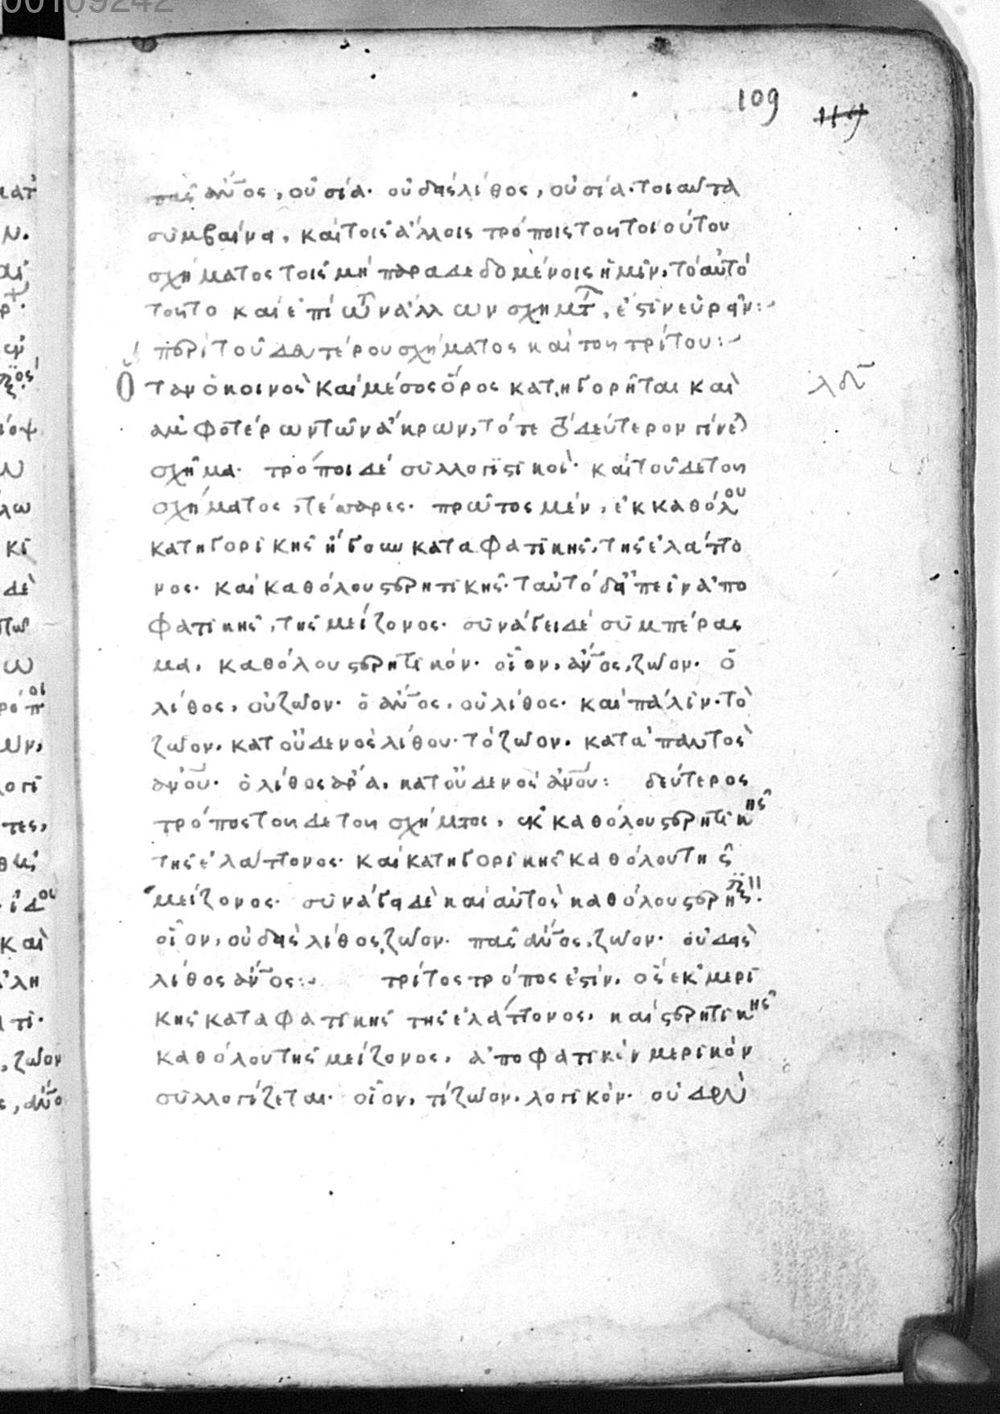 00109242
109
πᾶς ἄνος, οὐσία· οὐδεὶς λίθος, οὐσία· τοιαῦτα
συμβαίνει, καὶ τοῖς ἄλλοις τρόποις τοῦ τοιούτου
σχήματος τοῖς μὴ παραδεδομένοις ἡμῖν, τὸ αὐτὸ
τοῦτο καὶ ἐπὶ τῶν ἄλλων σχημάτ, ἔστιν εὑρεῖν:
περὶ τοῦ δευτέρου σχήματος καὶ τοῦ τρίτου:
Ὅταν ὁ κοινὸς καὶ μέσος ὅρος κατηγορῆται καὶ
ἀμφοτέρων τῶν ἄκρων, τότε τὸ δεύτερον γίνε
σχῆμα· τρόποι δὲ συλλογιστικοὶ· καὶ τοῦδε τοῦ
σχήματος, τέσσαρες· πρῶτος μὲν, ἐκ καθόλου
κατηγορικῆς ἤγουν καταφατικῆς, τῆς ἐλάττο
νος· καὶ καθόλου στερητικῆς· ταυτὸ δ' εἰπεῖν ἀπο
φατικῆς, τῆς μείζονος· συνάγει δὲ συμπέρας
μα, καθόλου στερητικόν· οἷον, ἄνος, ζῶον· ὁ
λίθος, οὐ ζῶον· ὁ ἄνος, οὐ λίθος· καὶ πάλιν· τὸ
ζῶον, κατ οὐδενὸς λίθου· τὸ ζῶον, κατὰ παντὸς
ἀνου· ὁ λίθος ἄρα, κατ οὐδενὸς ἀνου: δεύτερος
τρόπος τοῦδε τοῦ σχήματος, ἐκ καθόλου στερητικῆς
τῆς ἐλάττονος· καὶ κατηγορικῆς καθόλου τῆς
μείζονος· συνάγει δὲ καὶ αὐτὸς καθόλου στερη
οἷον, οὐδεὶς λίθος, ζῶον· πᾶς ἄνος, ζῶον· οὐδεὶς
λίθος ἄνος: τρίτος τρόπος ἐστὶν, ὃς ἐκ μερι
κῆς καταφατικῆς τῆς ἐλάττονος, καὶ στερητικῆς
καθόλου τῆς μείζονος, ἀποφατικὸν μερικὸν
συλλογίζεται· οἷον, τὶ ζῶον, λογικόν· οὐδὲν